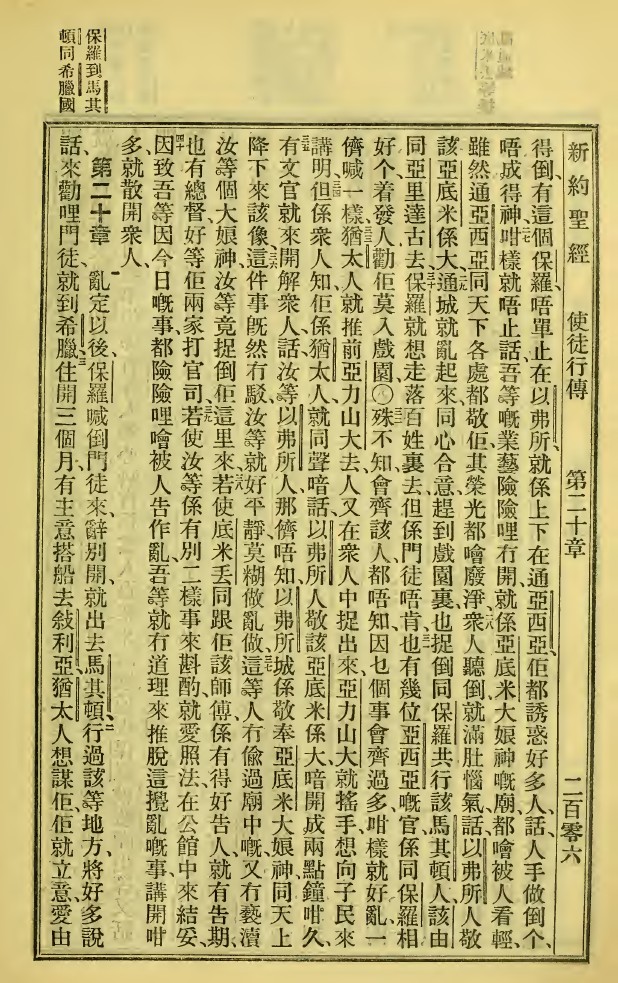 新約聖經 使徒行傳 第二十章 二百零六
得倒、有這個保羅唔單止在以弗所、就係上下在通亞西亞、佢都誘惑好多人、話、人手做倒个、
唔成得神、咁樣就唔止話吾等嘅業藝險險哩冇開、就係亞底米大娘神嘅廟、都噲被人看輕、
雖然通亞西亞同天下各處都敬佢、其榮光都噲廢淨、衆人聽倒就滿肚惱氣、話、以弗所人敬
該亞底米係大、通城就亂起來、同心合意、趕到戲園裏、也捉倒同保羅共行該馬其頓人、該由
同亞里達古去、保羅就想走落百姓裏去、但係門徒唔肯、也有幾位亞西亞嘅官係同保羅相
好个、着發人勸佢莫入戲園、殊不知會齊該人都唔知、因乜個事會齊過多、咁樣就好亂、一
儕喊一樣、猶太人就推前亞力山大去、人又在衆人中捉出來、亞力山大就搖手、想向子民來
講明、但係衆人知佢係猶太人、就同聲喑話、以弗所人敬該亞底米係大、喑開成兩點鐘咁久、
有文官就來開解衆人、話、汝等以弗所人、那儕唔知以弗所城係敬奉亞底米大娘神、同天上
降下來該像、這件事既然有駁、汝等就好平靜、莫糊做亂做、這等人冇偷過廟中嘅、又冇褻瀆
汝等個大娘神、汝等竟捉倒佢這里來、若使底米丟同跟佢該師傅係有得好告人、就有告期、
也有總督、好等佢兩家打官司、若使汝等係有別二樣事來斟酌、就愛照法在公館中來結妥、
因致吾等因今日嘅事、都險險哩噲被人告作亂、吾等就冇道理來推脫這攪亂嘅事、講開咁
多、就散開衆人、
第二十章 亂定以後、保羅喊倒門徒來、辭別開就出去馬其頓、行過該等地方、將好多說
話來勸哩門徒、就到希臘、住開三個月、有主意搭船去敍利亞、猶太人想謀佢、佢就立意、愛由
保羅到馬其
頓同希臘國